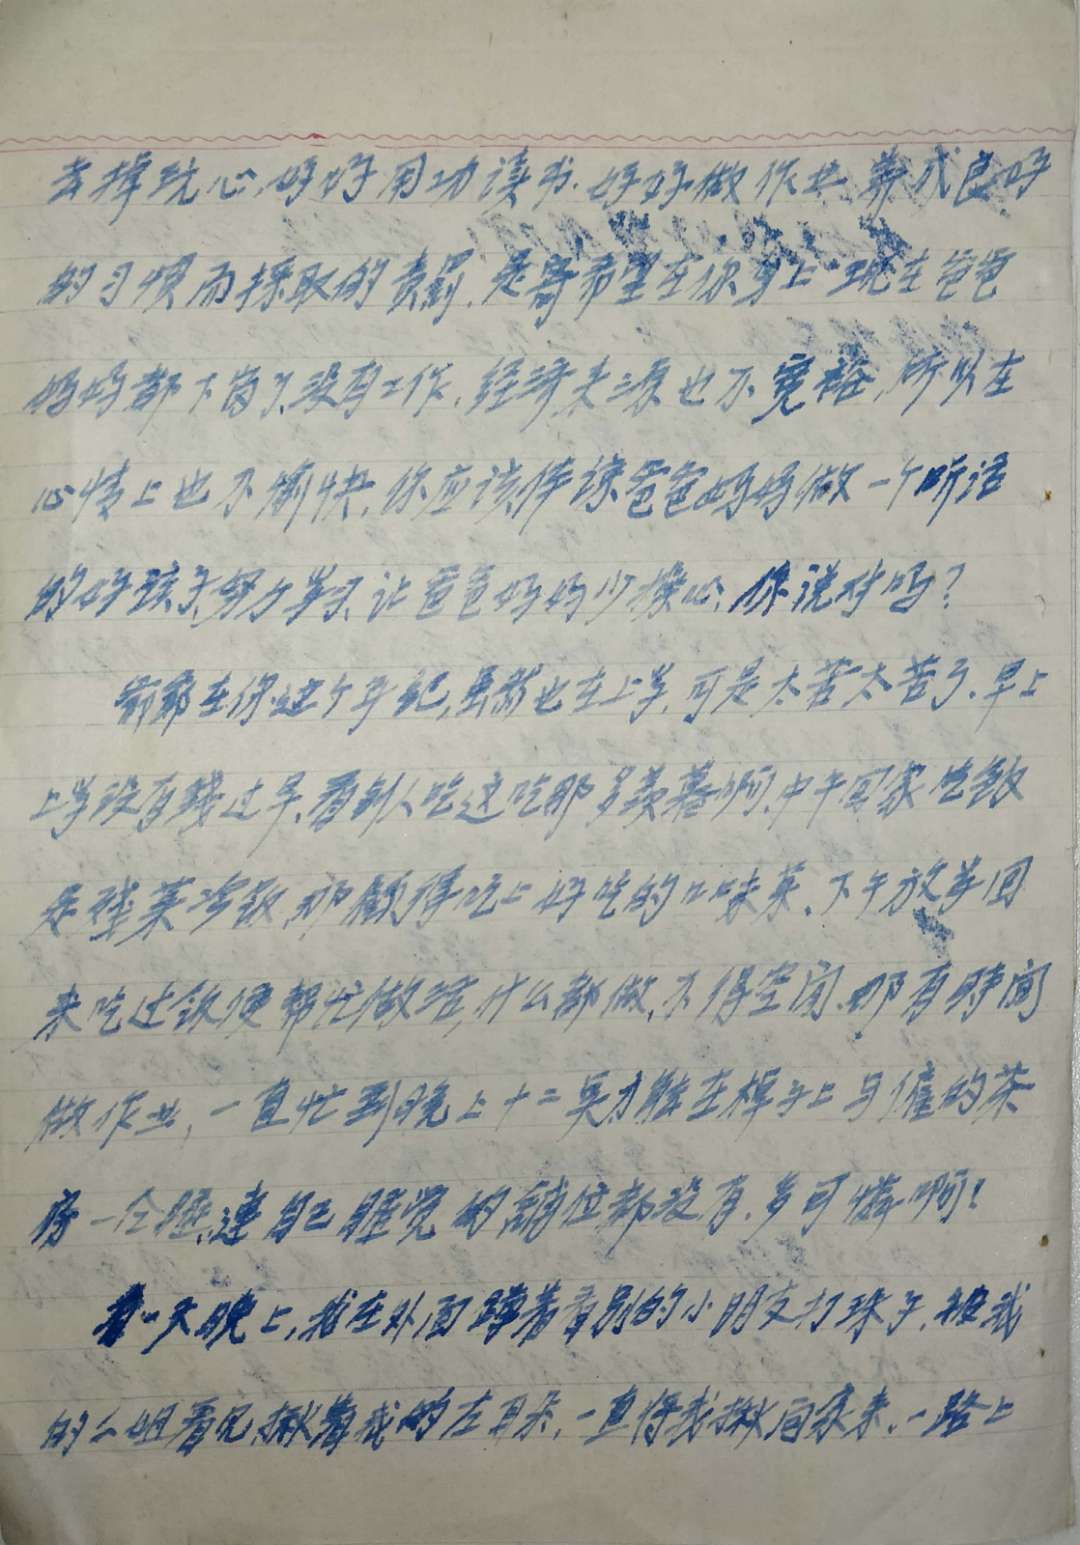 去掉玩心，好好用功读书，好好做作业，养成良好
的习惯而採取的责罚，是寄希望在你身上，现在爸爸
妈妈都下岗了，没有工作，经济来源也不宽裕，所以在
心情上也不愉快，你应该体谅爸爸妈妈做一个听话
的好孩子，努力学习，让爸爸妈妈少操心，你说对吗？
爷爷在你这个年纪，虽然也在上学，可是太苦太苦了，早上
上学没有钱过早，看别人吃这吃那多羡慕啊，中午回家吃饭
是残菜冷饭，那顾得吃上好吃的口味菜，下午放学回
来吃过饭便帮忙做活，什么都做，不得空闲，那有時间
做作业，一直忙到晚上十二点才能在桌子上与催的茶
房一仝睡，連自己睡觉的铺位都没有，多可怜啊！
有一天晚上，我在外面蹲着看别的小朋友打珠子，被我
的么姐看见，揪着我的左耳朵，一直将我揪回家来，一路上